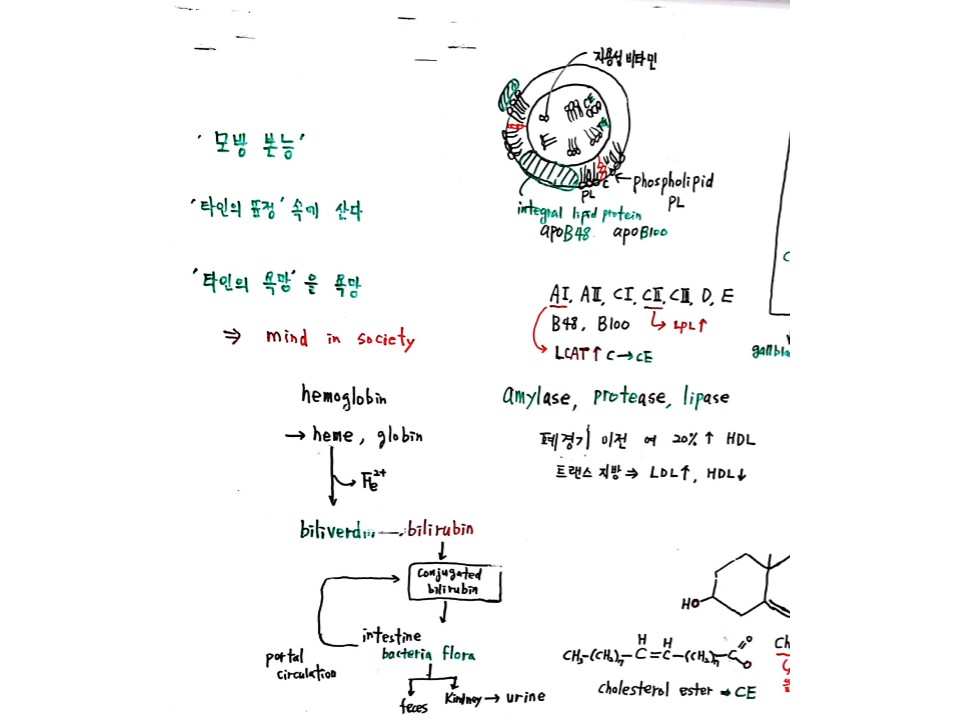 '모방 본능'
'타인의 표정' 속에 산다
'타인의 욕망'을 욕망
⇒ mind in society
지용성 비타민
CE
TG
C
PL
phospholipid
PL
integral lipid protein
apoB48 apoB100
AI, AII, CI, CII, CIII, D, E
B48, B100 → LPL↑
LCAT↑ C→CE
hemoglobin
→ heme, globin
Fe2+
biliverdin → bilirubin
conjugated
bilirubin
intestine
bacteria flora
portal
circulation
feces
Kindney → urine
amylase, protease, lipase
폐경기 이전 여 20%↑ HDL
트랜스 지방 ⇒ LDL↑, HDL↓
HO
H H
CH3-(CH2)7-C=C-(CH2)7-C
O
O
cholesterol ester ⇒ CE